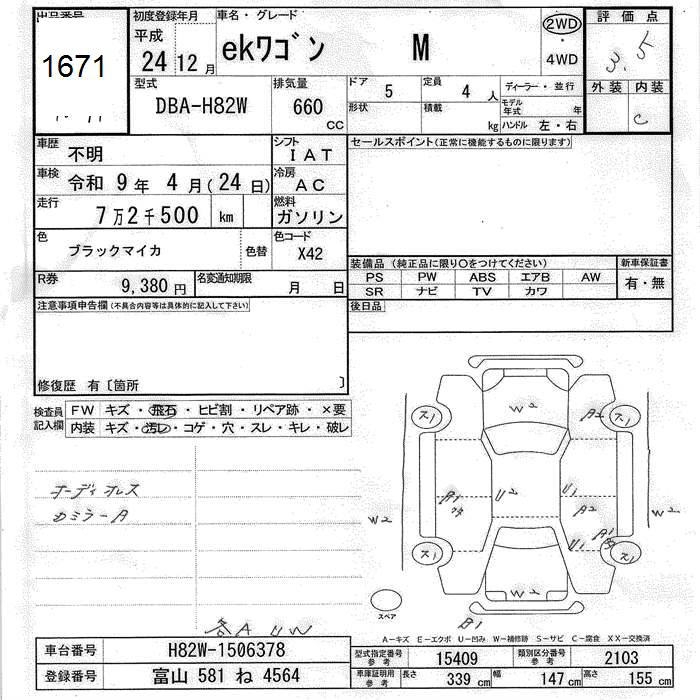 出品番号 初度登録年月 車名・グレード 評価点
1671
平成 24年 12月
ekワゴン M
2WD ・ 4WD
3.5
型式 排気量 ドア 5 定員 4 人 ディーラー・並行 外装 内装
DBA-H82W 660 CC 形状 積載 kg モデル年式 年
C
ハンドル 左・右
車歴 不明 シフト IAT セールスポイント(正常に機能するものに限ります)
車検 令和 9年 4月(24日) 冷房 AC
走行 7万2千500 km 燃料 ガソリン
色 ブラックマイカ 色替 色コード X42
装備品 (純正品に限り○をつけてください) 新車保証書
R券 9,380円 名変通知期限 月 日
PS PW ABS エアB AW 有・無
SR ナビ TV カワ
注意事項申告欄(不具合内容等は具体的に記入して下さい) 後日品
修復歴 有〔箇所 〕
検査員記入欄 FW キズ・飛石・ヒビ割・リペア跡・×要
内装 キズ・汚レ・コゲ・穴・スレ・キレ・破レ
W2
スト スト
A2
オーディオレス
カミラーA
A1 U2 U1
A2
W2 W2
A1
スト U1 スト
W2
スペア
B1
各A U W
A-キズ E-エクボ U-凹み W-補修跡 S-サビ C-腐食 XX-交換済
車台番号 H82W-1506378 型式指定番号 参考 15409 類別区分番号 参考 2103
登録番号 富山 581 ね 4564 車庫証明用 参考 長さ 339 cm 幅 147 cm 高さ 155 cm